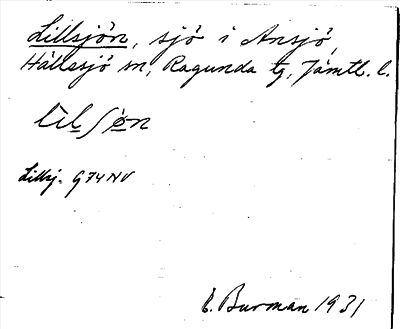 Lillsjön, sjö i Ansjö,
Hällesjö sn, Ragunda tg, Jämtl. l.
lìlʃø̀n
Lillsj. G74NV
E. Burman 1931